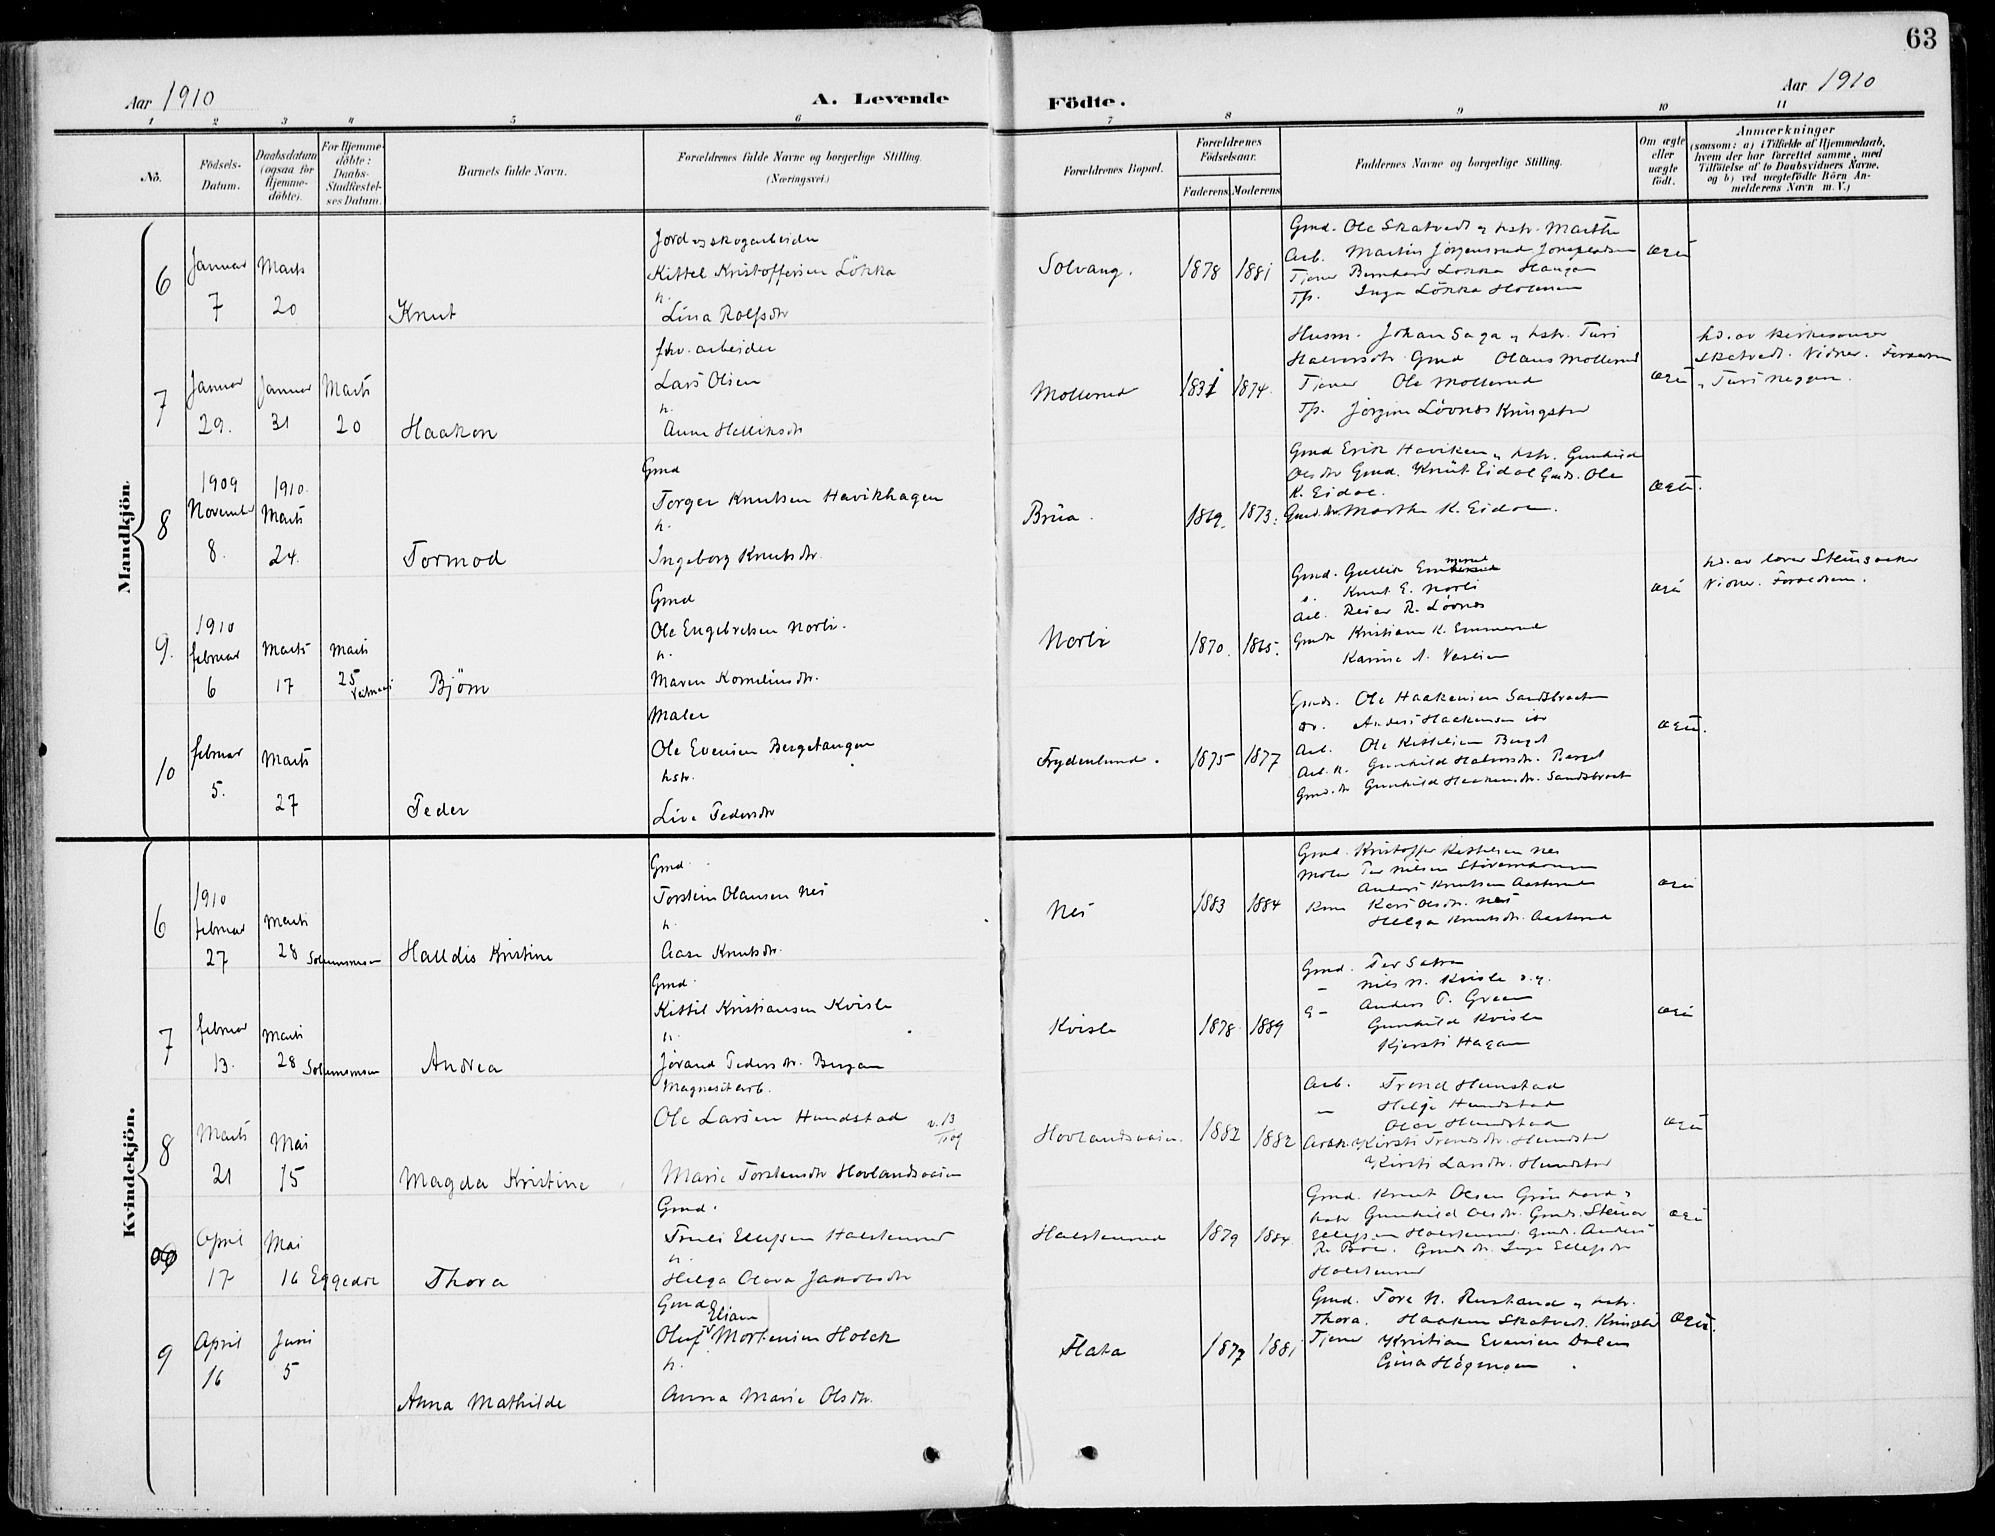 63
Aar 1910
A. Levende
Födte.
Aar 1910
1 2 3 4 5 6 7 8 9 10 11
Nö.
Födsels-Datum.
Daabsdatum (ogsaa for Hjemme-döbte).
For Hjemme-döbte: Daabs-Stadfæstel-ses Datum.
Barnets fulde Navn.
Forældrenes fulde Navne og borgerlige Stilling. (Næringsvei.)
Forældrenes Bopæl.
Forældrenes Födselsaar.
Faderens Moderens
Faddernes Navne og borgerlige Stilling.
Om ægte eller uægte födt.
Anmærkninger (saasom: a) i Tilfælde af Hjemmedaab, hvem der har forrettet samme, med Tilföielse af to Daabsvidners Navne, og b) ved uægtefödte Börn An-melderens Navn m. V.)
Mandkjön.
6
Januar 7
Marts 20
Knut
Jord og skogarbeider
Kittel Kristoffersen Lökka
h.
Lina Rolfsdtr
Solvang.
1878 1881
Gmd. Ole Skatvedt og hstr. Marthe
Arb. Martin Jörgensrud
Tjener Bernhard Lökka Haugen
Tjp. Inga Lökka
ægte
7
Januar 29.
Januar 31
Marts 20
Haakon
fhv. arbeider
Lars Olsen
h.
Anne Helliksdtr
Mollerud
1831 1874.
Husm. Johan Saga og hstr. Turi
Halvorsdtr Gmd Olaus Mollerud
Tjener Ole Mollerud
Tjp. Jörgine Lövnes
ægte
hd. av kirkesanger
Skatvedt. Vidner.
8
1909 November 8.
1910. Marts 24.
Tormod
Gmd
Torger Knutsen Havikhagen
h.
Ingeborg Knutsdtr.
Brua.
1869. 1873.
Gmd Erik Haviken og hstr. Gunhild
Olsdtr Gmd. Knut Eidal Gmds. Ole
K. Eidal.
Gmd.dtr Marthe K. Eidal.
ægte.
9.
1910 februar 6
Marts 17
Marts 25
Björn
Gmd
Ole Engebretsen Norli.
h.
Maren Korneliusdtr.
Norli
1870. 1865.
Gmd. Gullik
Knut E. Norli
Arb. Reiar R. Lövnes
Gmds Kristian K. Emmerud
Karine A.
ægte
hd. av lærer
Vidner. Forældrene.
10
februar 5.
Marts 27
Peder
Maler
Ole Evensen Bergetangen
hstr.
Live Pedersdtr
Frydenlund.
1875 1877
Gmds. Ole Haakensen Sandsbraaten
Anders Haakensen
Arb. Ole Kittelsen Berget
Arb. h. Gunhild Halvorsdtr. Berget
Gmd.dtr Gunhild Haakensdtr. Sandsbraat
ægte.
Kvindekjön.
6
1910 februar 27
Marts 28
Halldis Kristine
Gmd.
Torstein Olausen Nes
h.
Aase Knutsdtr.
Nes
1883 1884
Gmd. Kristoffer Kittelsen Nes
Maler Per Nilsen
Anders Knutsen Aasterud
Kari Olsdtr. Nes
Helga Knutsdtr. Aasterud
ægte
7
februar 13.
Marts 28
Andrea
Gmd.
Kittil Kristiansen Kvisle
h.
Jörand Pedersdtr. Bergan
Kvisle
1878 1889
Gmd. Per Satra
Nils N. Kvisle
Anders P. Green
Gunhild Kvisle
Kjersti Hagan
ægte
8
Marts 21
Mai 15
Magda Kristine
Magnesitarb.
Ole Larsen Hundstad
v. 13/1 09
Marie Torstensdtr Hovlandsaasen
Hovlandsaasen.
1882 1882
Arb. Trond Hundstad
Helge Hundstad
Olav Hundstad
Kirsti Trondsdtr. Hundstad
Kirsti Larsdtr. Hundstad
ægte
April 17
Mai 16 Eggedal
Thora
Gmd.
Truls Ellefsen Halstenrud
h.
Helga Olava Jakobsdtr
Halstenrud
1879 1884.
Gmd. Knut Olsen
hstr Gunhild Olsdtr. Gmds. Steinar
Ellefsen Halstenrud. Gmd. Anders
Gmds dtr. Inga Ellefsdtr
Halstenrud
ægte
9
April 16
Juni 5
Anna Mathilde
Gmd
Oluf Eliam Mortensen Holck
h.
Anna Marie Olsdtr.
Flata
1877 1881
Gmd. Tore N. Rustand og hstr.
Thora. Haaken Skatvedt.
Tjener Kristian Evensen Dalen
Gina
ægte.